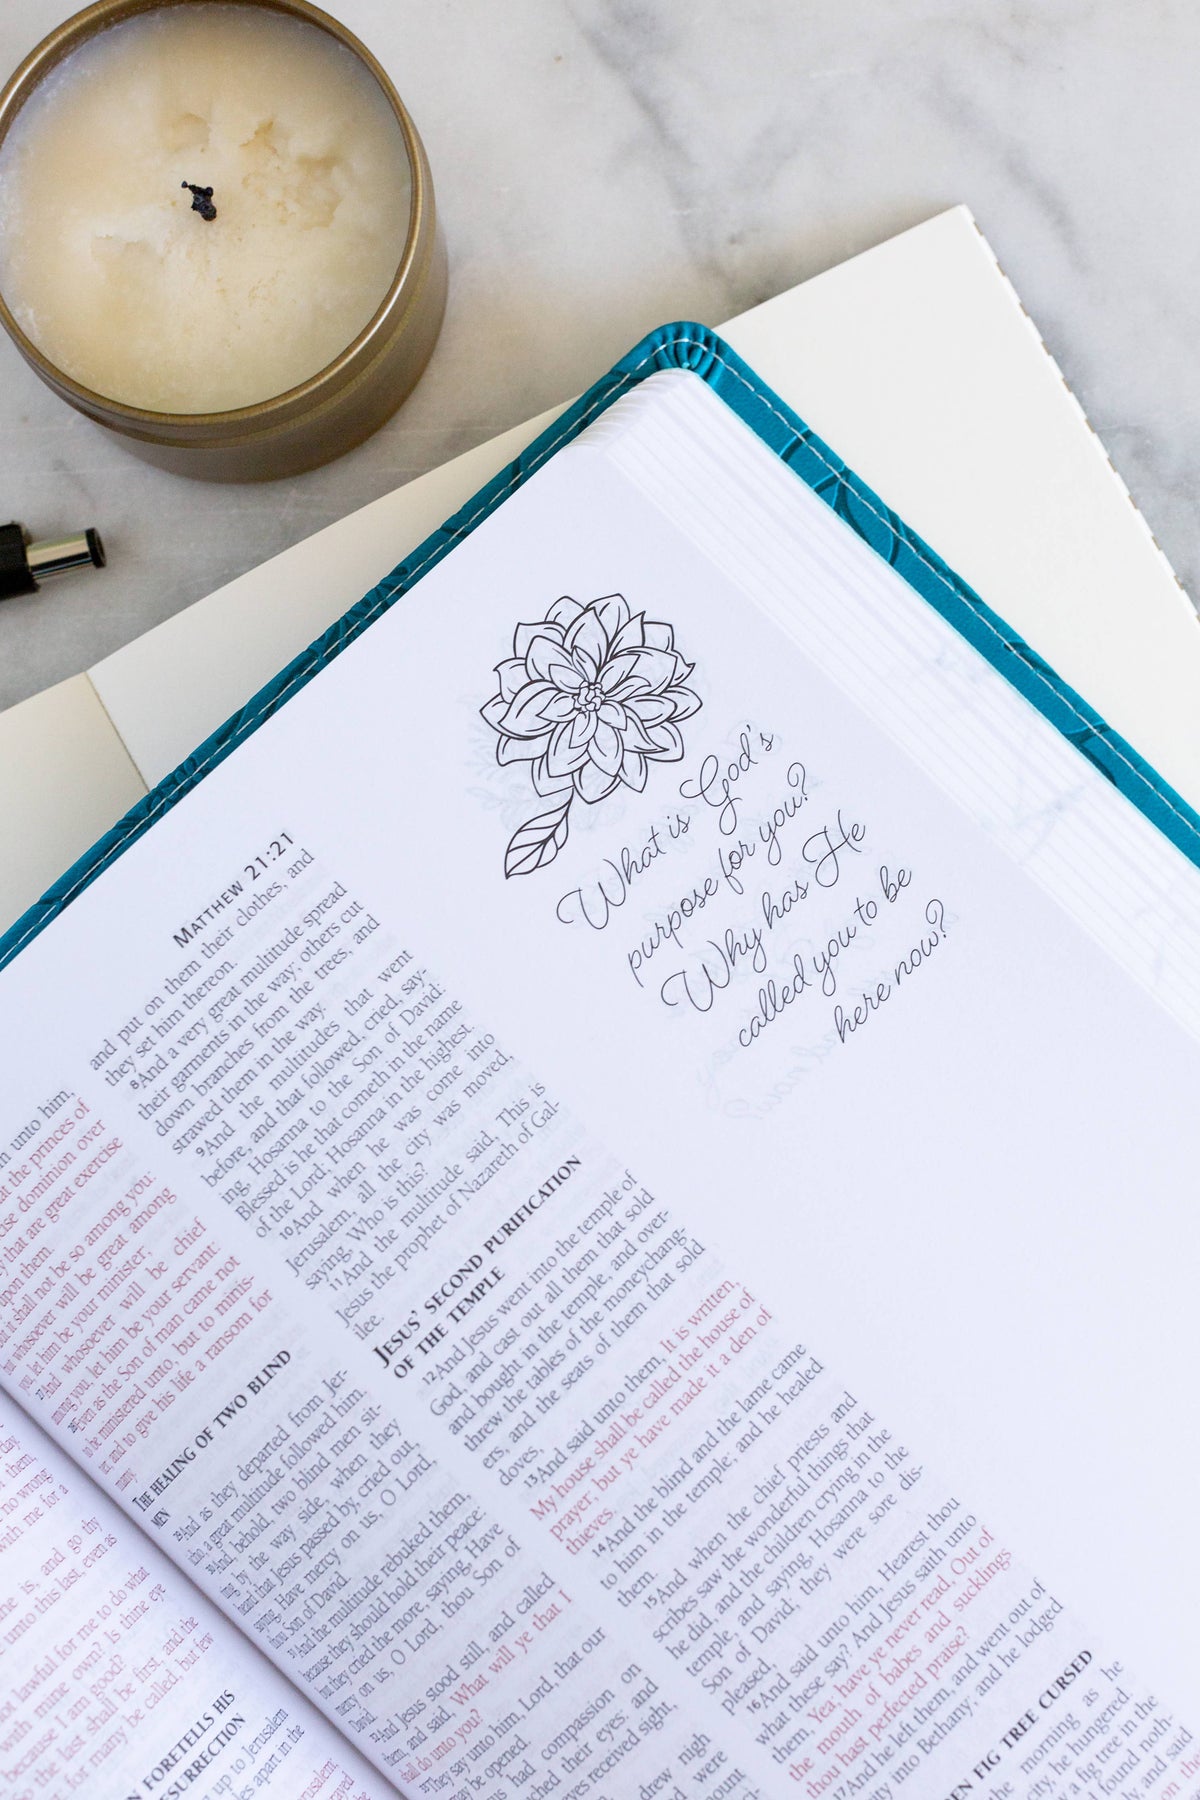 What is God's
purpose for you?
Why has He
called you to be
here now?
MATTHEW 21:21
and put on them their clothes, and
they set him thereon.
8And a very great multitude spread
their garments in the way; others cut
down branches from the trees, and
strawed them in the way.
9And the multitudes that went
before, and that followed, cried, say-
ing, Hosanna to the Son of David:
Blessed is he that cometh in the name
of the Lord; Hosanna in the highest.
10And when he was come into
Jerusalem, all the city was moved,
saying, Who is this?
11And the multitude said, This is
Jesus the prophet of Nazareth of Gal-
ilee.
JESUS' SECOND PURIFICATION
OF THE TEMPLE
12And Jesus went into the temple of
God, and cast out all them that sold
and bought in the temple, and over-
threw the tables of the moneychang-
ers, and the seats of them that sold
doves,
13And said unto them, It is written,
My house shall be called the house of
prayer; but ye have made it a den of
thieves.
14And the blind and the lame came
to him in the temple; and he healed
them.
15And when the chief priests and
scribes saw the wonderful things that
he did, and the children crying in the
temple, and saying, Hosanna to the
Son of David; they were sore dis-
pleased,
16And said unto him, Hearest thou
what these say? And Jesus saith unto
them, Yea; have ye never read, Out of
the mouth of babes and sucklings
thou hast perfected praise?
17And he left them, and went out of
city into Bethany; and he lodged
FIG TREE CURSED
morning as he
city, he hungered.
a fig tree in the
found noth-
and said
unto him,
at the princes of
cise dominion over
that are great exercise
upon them.
it shall not be so among you:
but whosoever will be great among
you, let him be your minister;
27And whosoever will be chief
among you, let him be your servant:
28Even as the Son of man came not
to be ministered unto, but to minis-
ter, and to give his life a ransom for
many.
THE HEALING OF TWO BLIND
MEN
29And as they departed from Jer-
icho, a great multitude followed him.
30And, behold, two blind men sit-
ting by the way side, when they
heard that Jesus passed by, cried out,
saying, Have mercy on us, O Lord,
thou Son of David.
31And the multitude rebuked them,
because they should hold their peace:
but they cried the more, saying, Have
mercy on us, O Lord, thou Son of
David.
32And Jesus stood still, and called
them, and said, What will ye that I
shall do unto you?
33They say unto him, Lord, that our
may be opened.
had compassion on
their eyes: and
eyes received sight,
drew nigh
were
mount
day.
them,
no wrong:
with me for a
thine is, and go thy
unto this last, even as
not lawful for me to do what
with mine own? Is thine eye
because I am good?
the last shall be first, and the
for many be called, but few
FORETELLS HIS
up to Jerusalem
apart in the